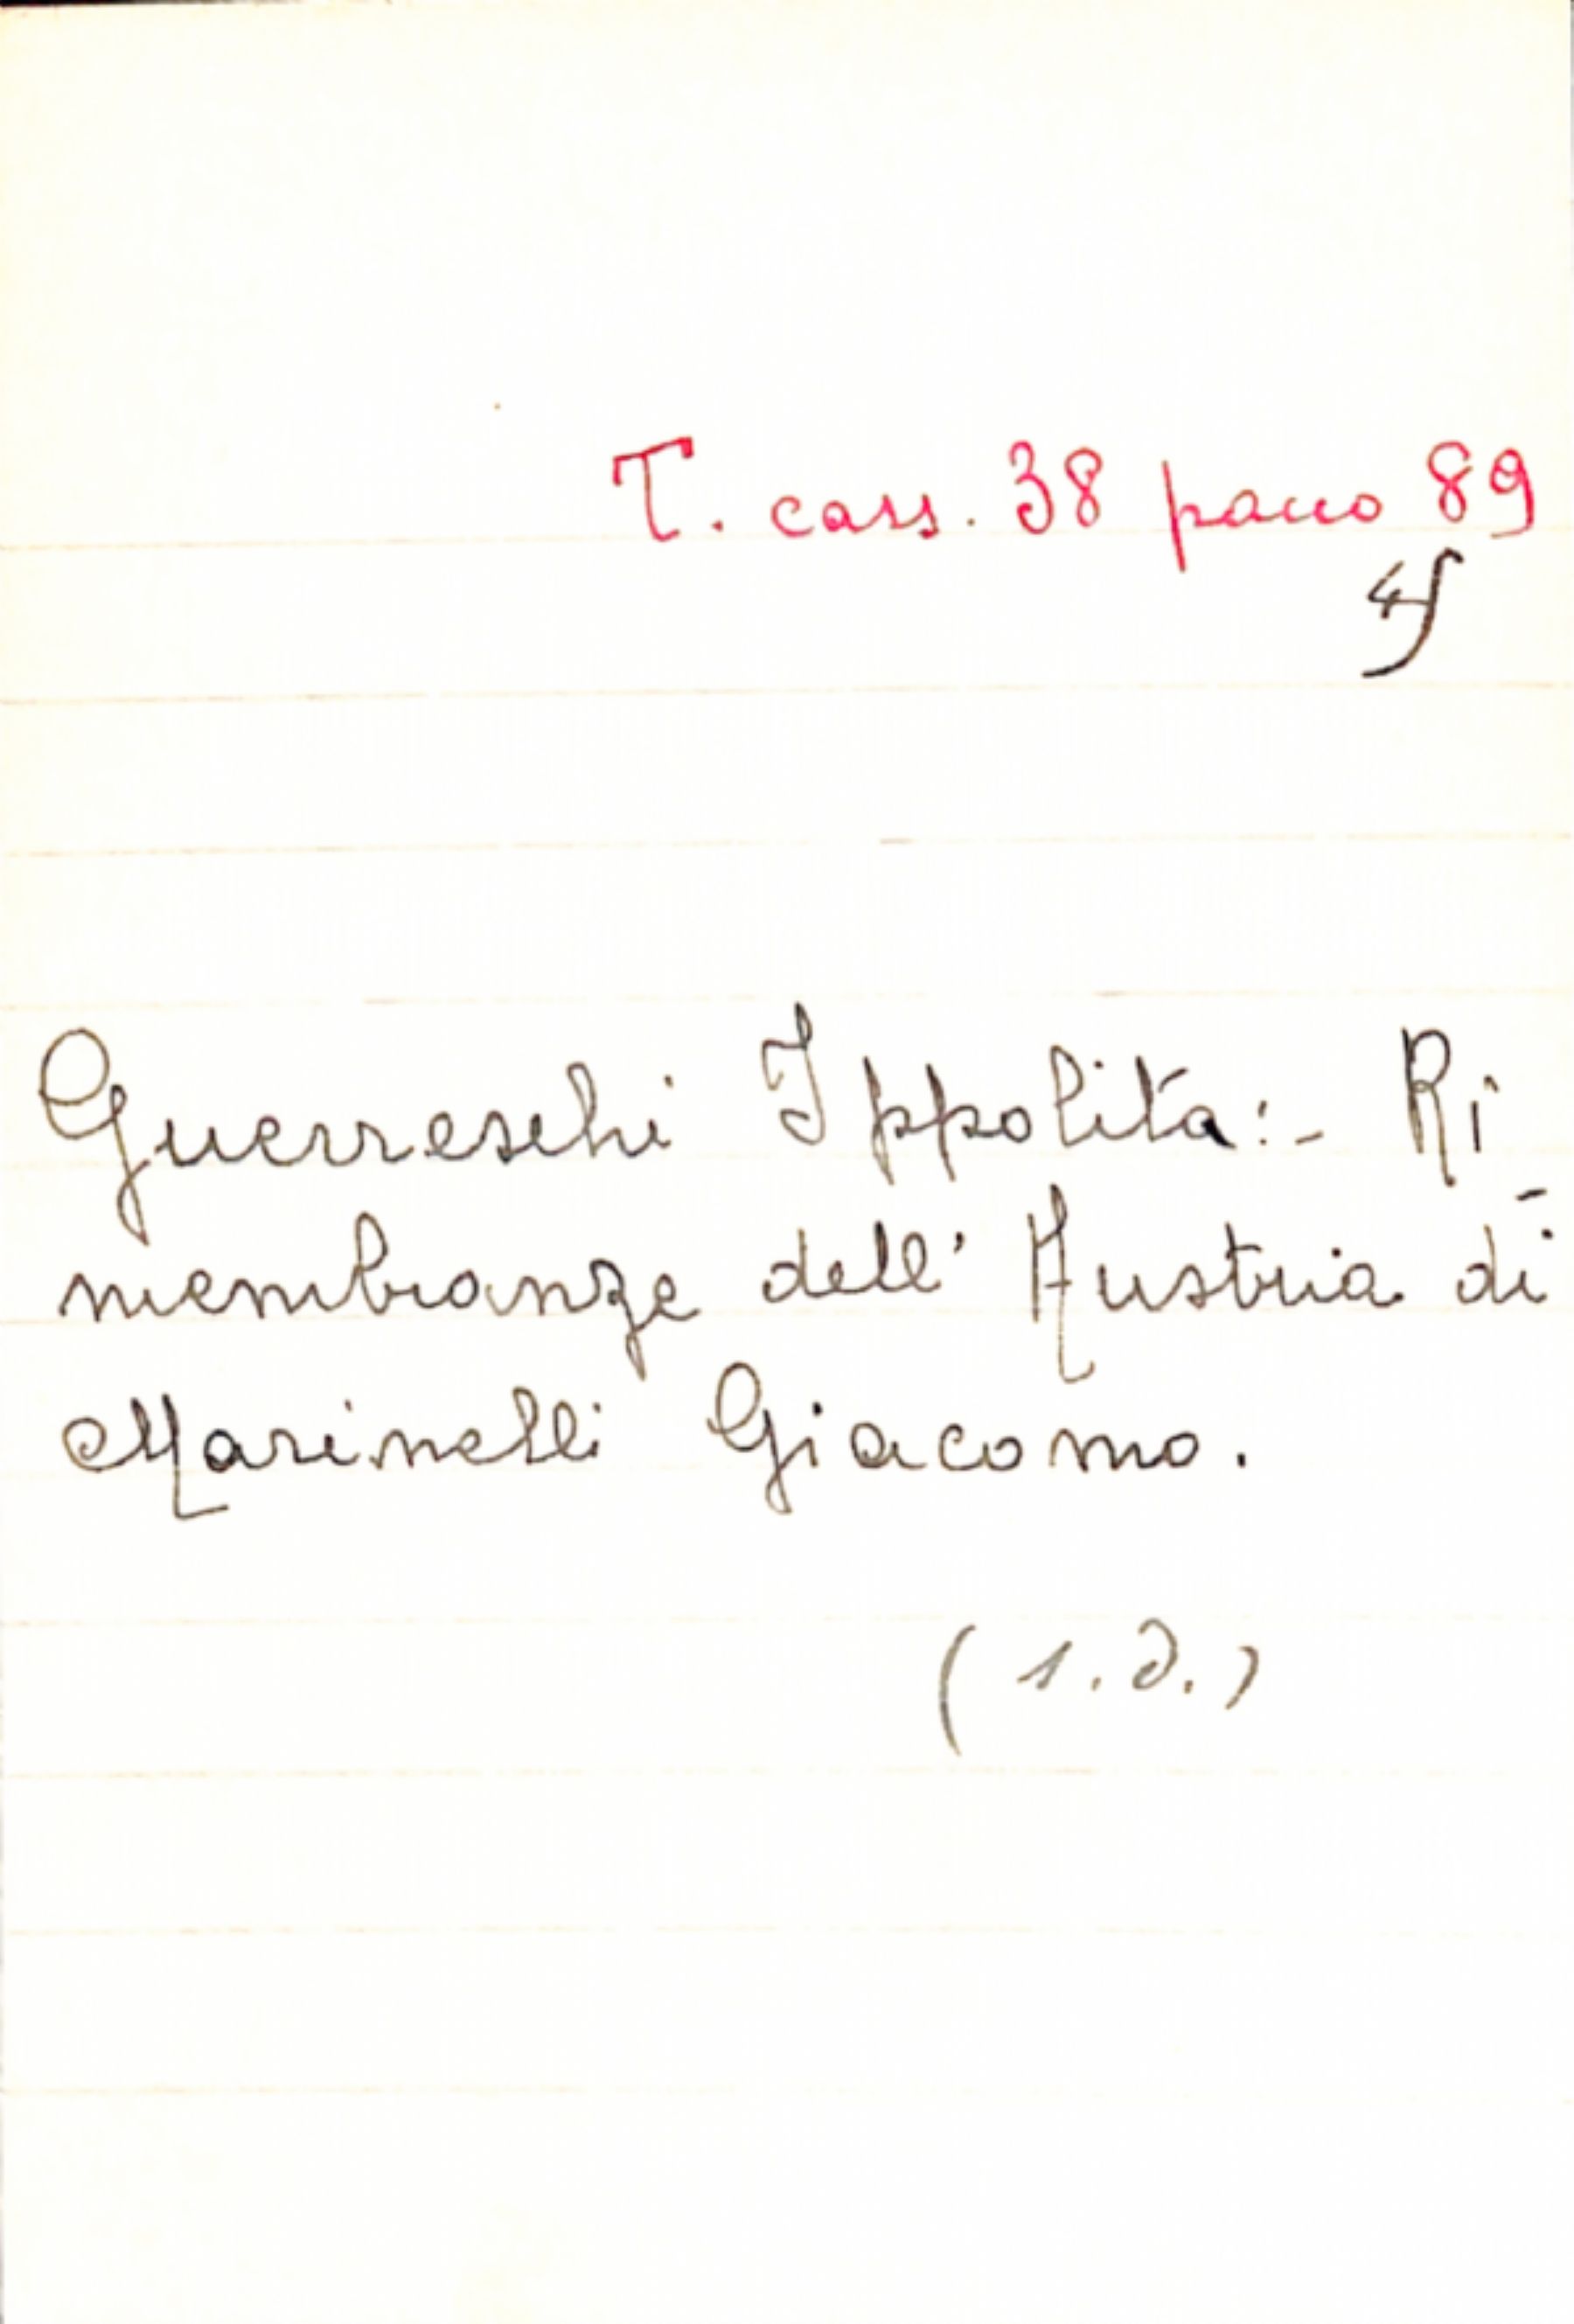 T. cass. 38 pacco 89
Guerreschi Ippolita:- Ri-
membranze dell' Austria di
Marinelli Giacomo.
(s.d.)